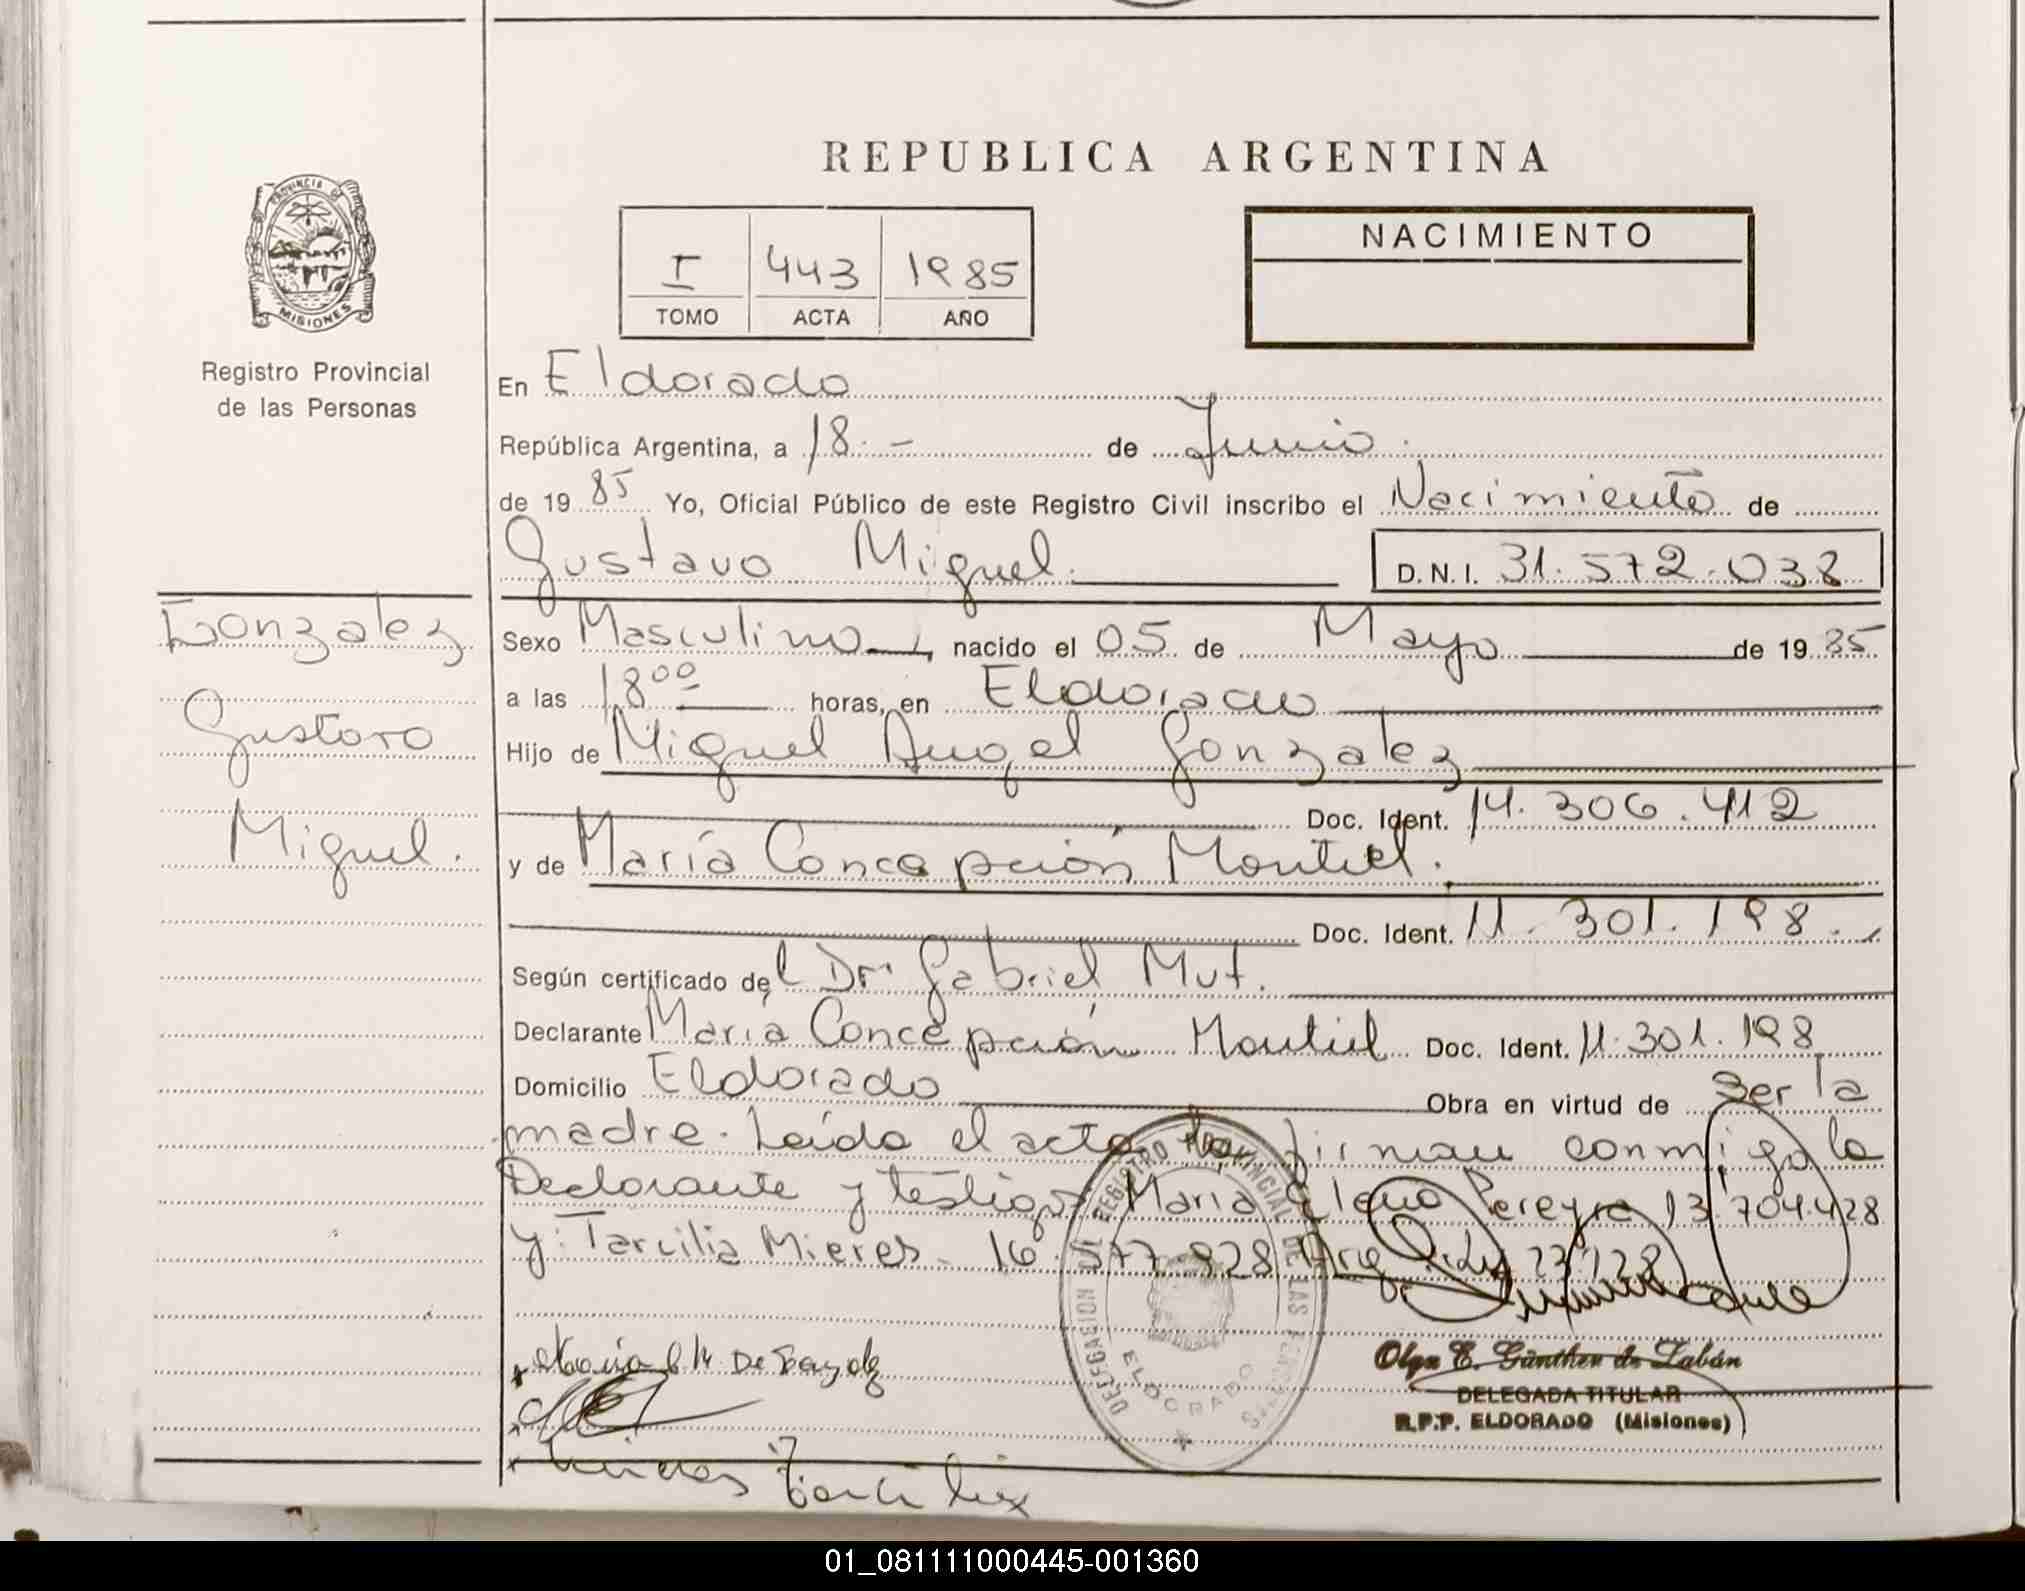 REPUBLICA ARGENTINA
PROVINCIA DE
MISIONES
Registro Provincial
de las Personas
I 443 1985
TOMO ACTA AÑO
NACIMIENTO
En Eldorado
República Argentina, a 18.- de Junio.
de 1985 Yo, Oficial Público de este Registro Civil inscribo el Nacimiento de
Gustavo Miguel. D.N.I. 31.572.038
Gonzalez
Gustavo
Miguel.
Sexo Masculino, nacido el 05 de Mayo de 1985
a las 18ºº horas, en Eldorado
Hijo de Miguel Angel Gonzalez
Doc. Ident. 14.306.412
y de María Concepción Montiel.
Doc. Ident. 11.301.198.
Según certificado del Dr. Gabriel Mut.
Declarante María Concepción Montiel Doc. Ident. 11.301.198
Domicilio Eldorado Obra en virtud de ser la
madre. Leída el acta la firman conmigo la
Declorante y testigos María Elena Pereyra 13.704.428
y: Tarcilia Mieres. 16.577.928
DELEGACION DEL REGISTRO PROVINCIAL DE LAS PERSONAS
ELDORADO
Olga E. Günther de Labán
DELEGADA TITULAR
R.P.P. ELDORADO (Misiones)
Mieres Tarcilia
01_081111000445-001360